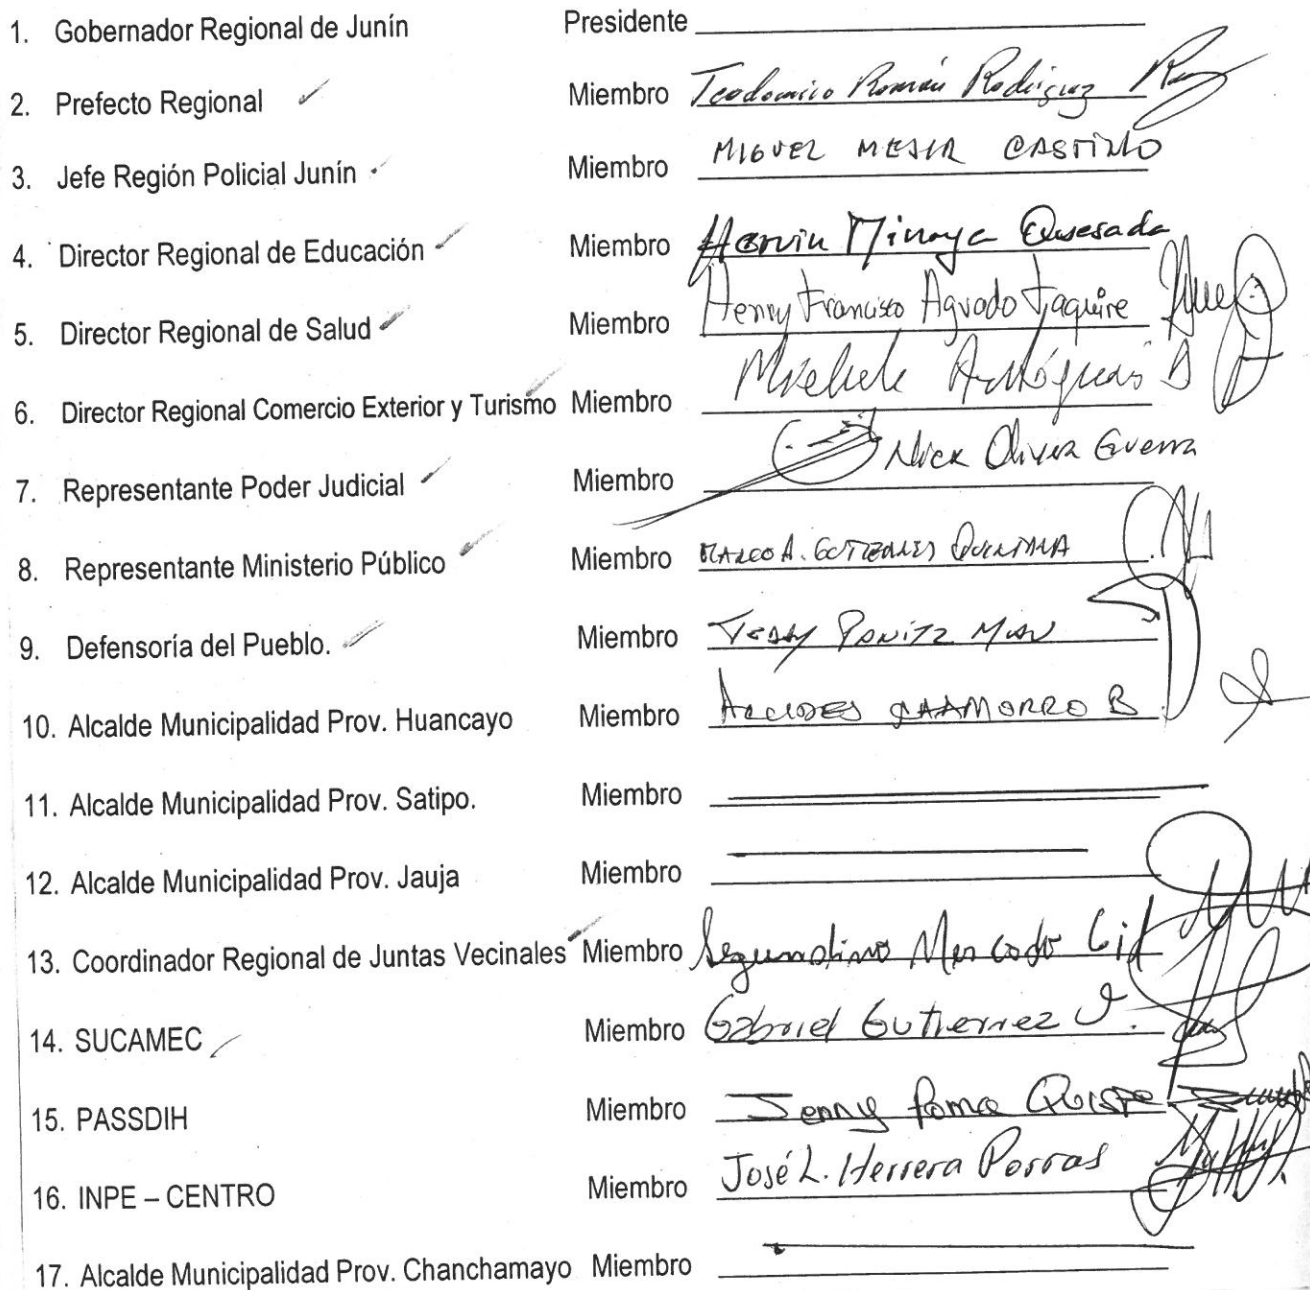 1. Gobernador Regional de Junín Presidente
2. Prefecto Regional Miembro Teodomiro Román Rodríguez
3. Jefe Región Policial Junín Miembro MIGUEL MEJIA CASTILLO
4. Director Regional de Educación Miembro Minaya Quesada
5. Director Regional de Salud Miembro Henry Francisco Aguado Taquire
6. Director Regional Comercio Exterior y Turismo Miembro
7. Representante Poder Judicial Miembro Nick Olivera Guerra
8. Representante Ministerio Público Miembro MARCO A.
9. Defensoría del Pueblo. Miembro
10. Alcalde Municipalidad Prov. Huancayo Miembro ALCIDES CHAMORRO B.
11. Alcalde Municipalidad Prov. Satipo. Miembro
12. Alcalde Municipalidad Prov. Jauja Miembro
13. Coordinador Regional de Juntas Vecinales Miembro Segundino Mercado Cid
14. SUCAMEC Miembro Gabriel Gutierrez V.
15. PASSDIH Miembro Jenny Poma Quispe
16. INPE – CENTRO Miembro José L. Herrera Porras
17. Alcalde Municipalidad Prov. Chanchamayo Miembro